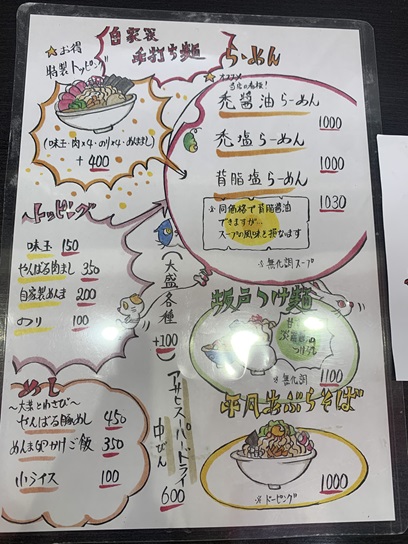 自家製
手打ち麺 らーめん
★お得
特製トッピング
(味玉・肉×4・のり×4・めんまし)
+400
★オススメ
当店の看板!
禿醬油らーめん
1000
禿塩らーめん
1000
背脂塩らーめん
1030
※同価格で背脂醬油
できますが…
スープの風味を損なます
※無化調スープ
トッピング
味玉 150
やんばる肉まし 350
自家製めんま 200
のり 100
(大盛各種
+100)
坂戸つけ麺
つけ汁
※無化調
1100
めし
~大葉とわさび~
やんばる豚めし 450
めんま卵かけご飯 350
小ライス 100
アサヒスーパードライ
中びん
600
油ぶらそば
1000
※ドーピング